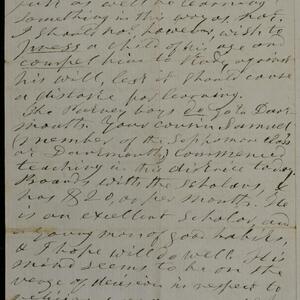 just as well be learning
something in this way as not.
I should not, however, wish to
press a child of his age and
compel him to read, against
his will, lest it should cause
a distaste for learning.
The boys do go to Dart-
mouth. Your cousin Samuel
(a member of the Sophomore class
at Dartmouth) commenced
teaching in this district to-day
Boards with the scholars, &
has $20,00 per month. He
is an excellent scholar and
a young man of good habits,
& I hope will do well. His
mind seems to be on the
verge of decision in respect to